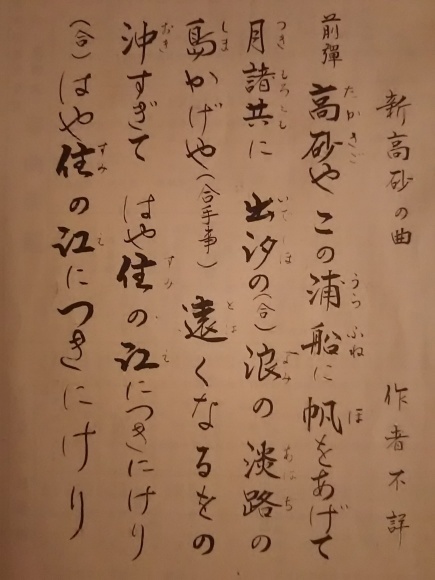 新高砂の曲 作者不詳
前弾 高砂や この浦船に 帆をあげて
月諸共に 出汐の(合)浪の 淡路の
島かげや(合手事) 遠くなるをの
沖すぎて はや住の江につきにけり
(合)はや住の江につきにけり